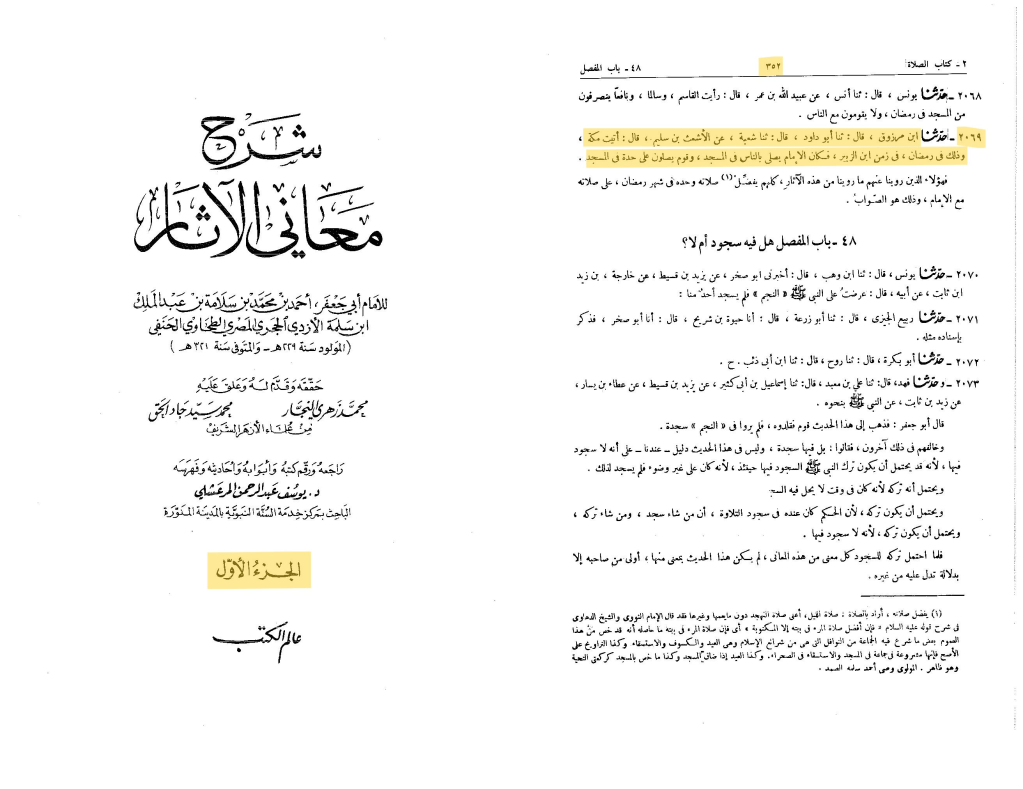 شرح
معاني الآثار
للإمام أبي جعفر، أحمد بن محمد بن سلامة بن عبد الملك
ابن سلمة الأزدي الحجري المصري الطحاوي الحنفي
(المولود سنة ٢٢٩ هـ - والمتوفى سنة ٣٢١ هـ)
حققه وقدم له وعلق عليه
محمد زهري النجار محمد سيد جاد الحق
من علماء الأزهر الشريف
راجعه ورقم كتبه وأبوابه وأحاديثه وفهرسه
د. يوسف عبد الرحمن المرعشلي
الباحث بمركز خدمة السنة النبوية بالمدينة المنورة
الجزء الأول
عالم الكتب
٢ - كتاب الصلاة ٣٥٢ ٤٨ - باب المفصل
٢٠٦٨ - حدثنا يونس ، قال : ثنا أنس ، عن عبيد الله بن عمر ، قال : رأيت القاسم ، وسالما ، ونافعاً ينصرفون
من المسجد فى رمضان ، ولا يقومون مع الناس .
٢٠٦٩ - حدثنا ابن مرزوق ، قال : ثنا أبو داود ، قال : ثنا شعبة ، عن الأشعث بن سليم ، قال : أتيت مكة ،
وذلك فى رمضان ، فى زمن ابن الزبير ، فكان الامام يصلى بالناس فى المسجد ، وقوم يصلون على حدة فى المسجد .
فهؤلاء الذين روينا عنهم ما روينا من هذه الآثار ، كلهم يفضّل (١) صلاته وحده فى شهر رمضان ، على صلاته
مع الإمام ، وذلك هو الصواب .
٤٨ - باب المفصل هل فيه سجود أم لا؟
٢٠٧٠ - حدثنا يونس ، قال : ثنا ابن وهب ، قال : أخبرنى ابو صخر ، عن يزيد بن قسيط ، عن خارجة ، بن زيد
ابن ثابت ، عن أبيه ، قال : عرضت على النبى ﷺ « النجم » فلم يسجد أحد منا :
٢٠٧١ - حدثنا ربيع الجيزى ، قال : ثنا أبو زرعة ، قال : أنا حيوة بن شريح ، قال : أنا أبو صخر ، فذكر
بإسناده مثله .
٢٠٧٢ - حدثنا أبو بكرة ، قال : ثنا روح ، قال : ثنا ابن أبى ذئب . ح .
٢٠٧٣ - وحدثنا فهد، قال: ثنا على بن معبد ، قال: ثنا إسماعيل بن أبى كثير ، عن يزيد بن قسيط ، عن عطاء بن يسار ،
عن زيد بن ثابت ، عن النبى ﷺ بنحوه .
قال أبو جعفر : فذهب إلى هذا الحديث قوم فقلدوه ، فلم يروا فى « النجم » سجدة .
وخالفهم فى ذلك آخرون ، فقالوا : بل فيها سجدة ، وليس فى هذا الحديث دليل - عندنا - على أنه لا سجود
فيها ، لأنه قد يحتمل أن يكون ترك النبى ﷺ السجود فيها حينئذ ، لأنه كان على غير وضوء فلم يسجد لذلك .
ويحتمل أنه تركه لأنه كان فى وقت لا يحل فيه
ويحتمل أن يكون تركه ، لأن الحكم كان عنده فى سجود التلاوة ، أن من شاء سجد ، ومن شاء تركه ،
ويحتمل أن يكون تركه ، لأنه لا سجود فيها .
فلما احتمل تركه للسجود كل معنى من هذه المعانى ، لم يكن هذا الحديث بمعنى منها ، أولى من صاحبه إلا
بدلالة تدل عليه من غيره .
(١) يفضل صلاته ، أراد بالصلاة : صلاة الليل، أعنى صلاة التهجد دون مايعمها وغيرها فقد قال الإمام النووى والشيخ الدهلوى
فى شرح قوله عليه السلام « فإن أفضل صلاة المرء فى بيته إلا المكتوبة » أى فإن صلاة المرء فى بيته ما حاصله أنه قد خص من هذا
العموم بعض ما شرع فيه الجماعة من النوافل التى هى من شرائع الإسلام وهى العيد والكسوف والاستسقاء وكذا التراويح على
الأصح فإنها مشروعة فى جماعة فى المسجد والاستسقاء فى الصحراء. وكذا العيد إذا ضاق المسجد وكذا ما خص بالمسجد كركعتى التحية
وهو ظاهر . المولوى وصى أحمد سلمه الصمد .